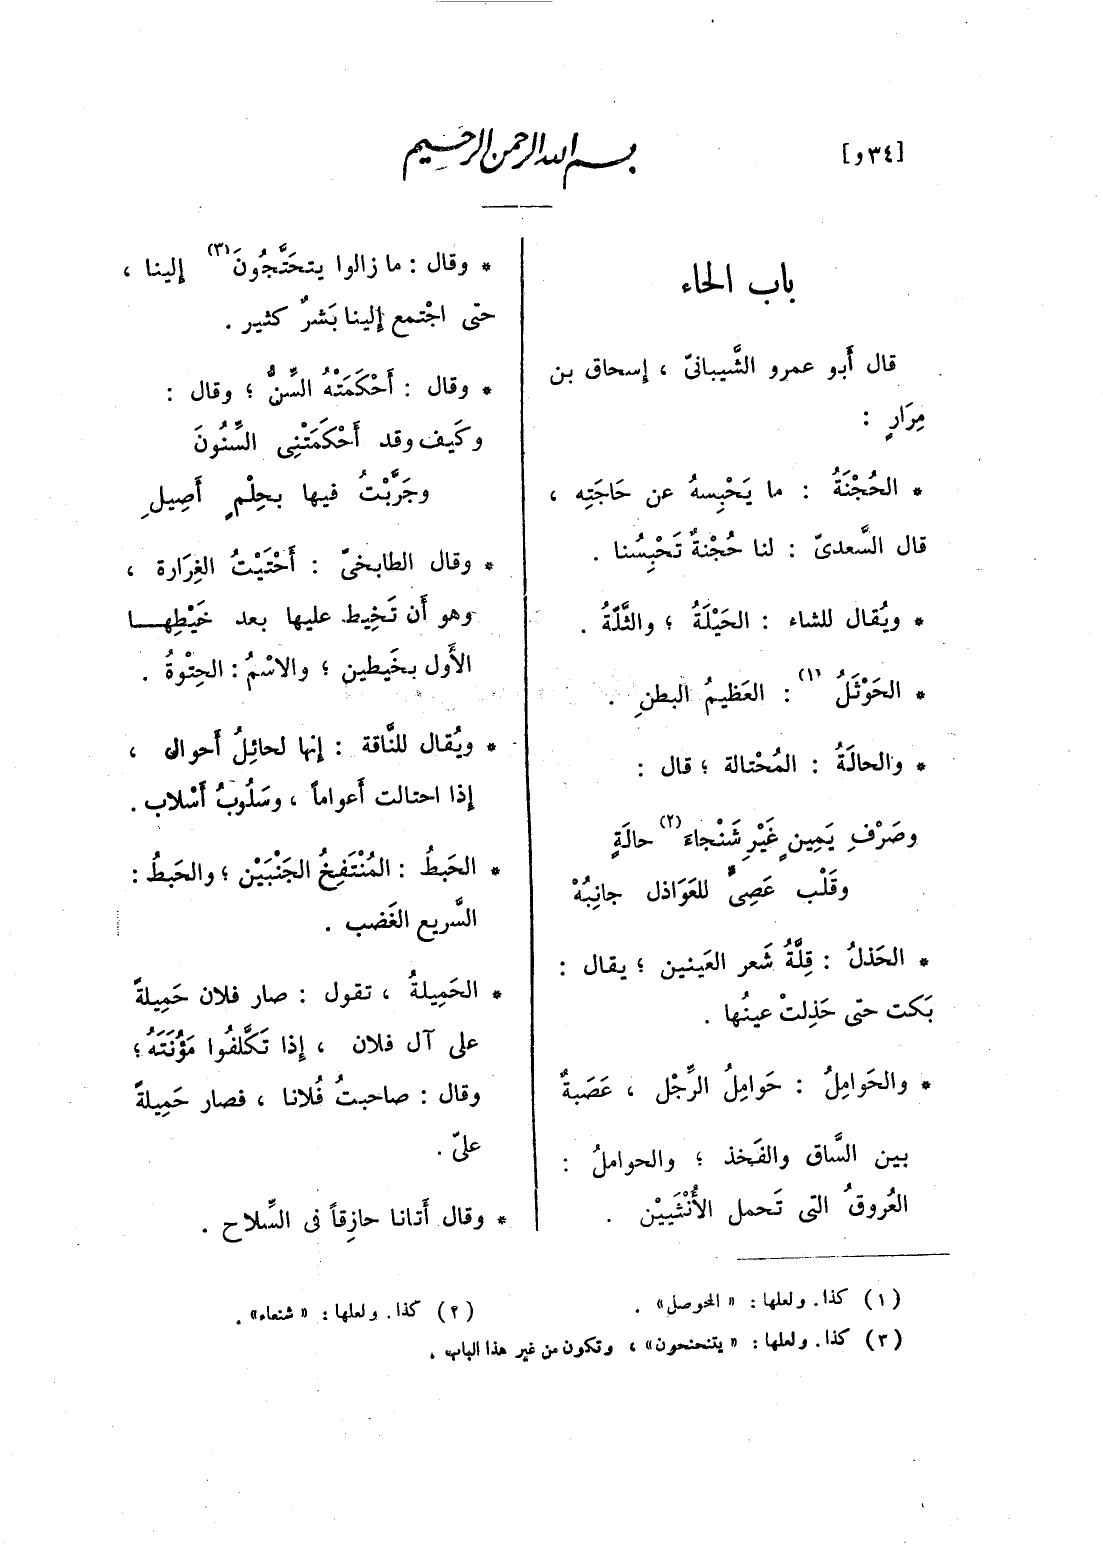 [٣٤ و]
بسم الله الرحمن الرحيم
باب الحاء
قال أَبو عمرو الشَّيبانىّ ، إسحاق بن
مِرَارٍ :
* الحُجْنَةُ : ما يَحْبِسهُ عن حَاجَتِه ،
قال السَّعدىّ : لنا حُجْنةٌ تَحْبِسُنا .
* ويُقال للشاء : الحَيْلَةُ ؛ والثَّلَّةُ .
* الحَوْثَلُ (١) : العَظيمُ البطنِ .
* والحالَةُ : المُحْتالة ؛ قال :
وصَرْفِ يَمِينٍ غَيْرِ شَنْجاءَ (٢) حالَةٍ
وقَلْب عَصِىٌّ للعَوَاذل جانِبُهْ
* الحَذلُ : قِلَّةُ شَعر العَينين ؛ يقال :
بَكت حتى حَذِلتْ عينُها .
* والحَوامِلُ : حَوامِلُ الرِّجْل ، عَصَبةٌ
بين السَّاق والفَخذ ؛ والحواملُ :
العُروقُ التى تَحمل الأُنْثَيينْ .
* وقال : ما زالوا يتحَتَّجُونَ (٣) إلينا ،
حتى اجْتمع إلينا بَشرٌ كثير .
* وقال : أَحْكَمَتْهُ السِّنُّ ؛ وقال :
وكَيف وقد أَحْكَمَتْنِى السِّنُونَ
وجَرَّبْتُ فيها بحِلْمٍ أَصِيلِ
* وقال الطابخىّ : أَحْتَيْتُ الغِرَارة ،
وهو أَن تَخِيط عليها بعد خَيْطِهـــا
الأَول بخَيطين ؛ والاسْمُ : الحِتْوةُ .
* ويُقال للنَّاقة : إنها لحائِلُ أَحوال ،
إذا احتالت أَعواماً ، وسَلُوبُ أَسْلاب .
* الحَبطُ : المُنْتَفِخُ الجَنْبَيْن ؛ والحَبطُ :
السَّريع الغَضب .
* الحَمِيلةُ ، تقول : صار فلان حَمِيلةً
على آل فلان ، إذا تَكَلَّفُوا مَؤُنَتَهُ ؛
وقال : صاحبتُ فُلانا ، فصار حَمِيلةً
علىّ .
* وقال أَتانا حازِقاً فى السِّلاح .
(١) كذا. ولعلها: «الحوصل» .
(٢) كذا. ولعلها: «شنعاء» .
(٣) كذا. ولعلها: «يتنحنحون» ، وتكون من غير هذا الباب .